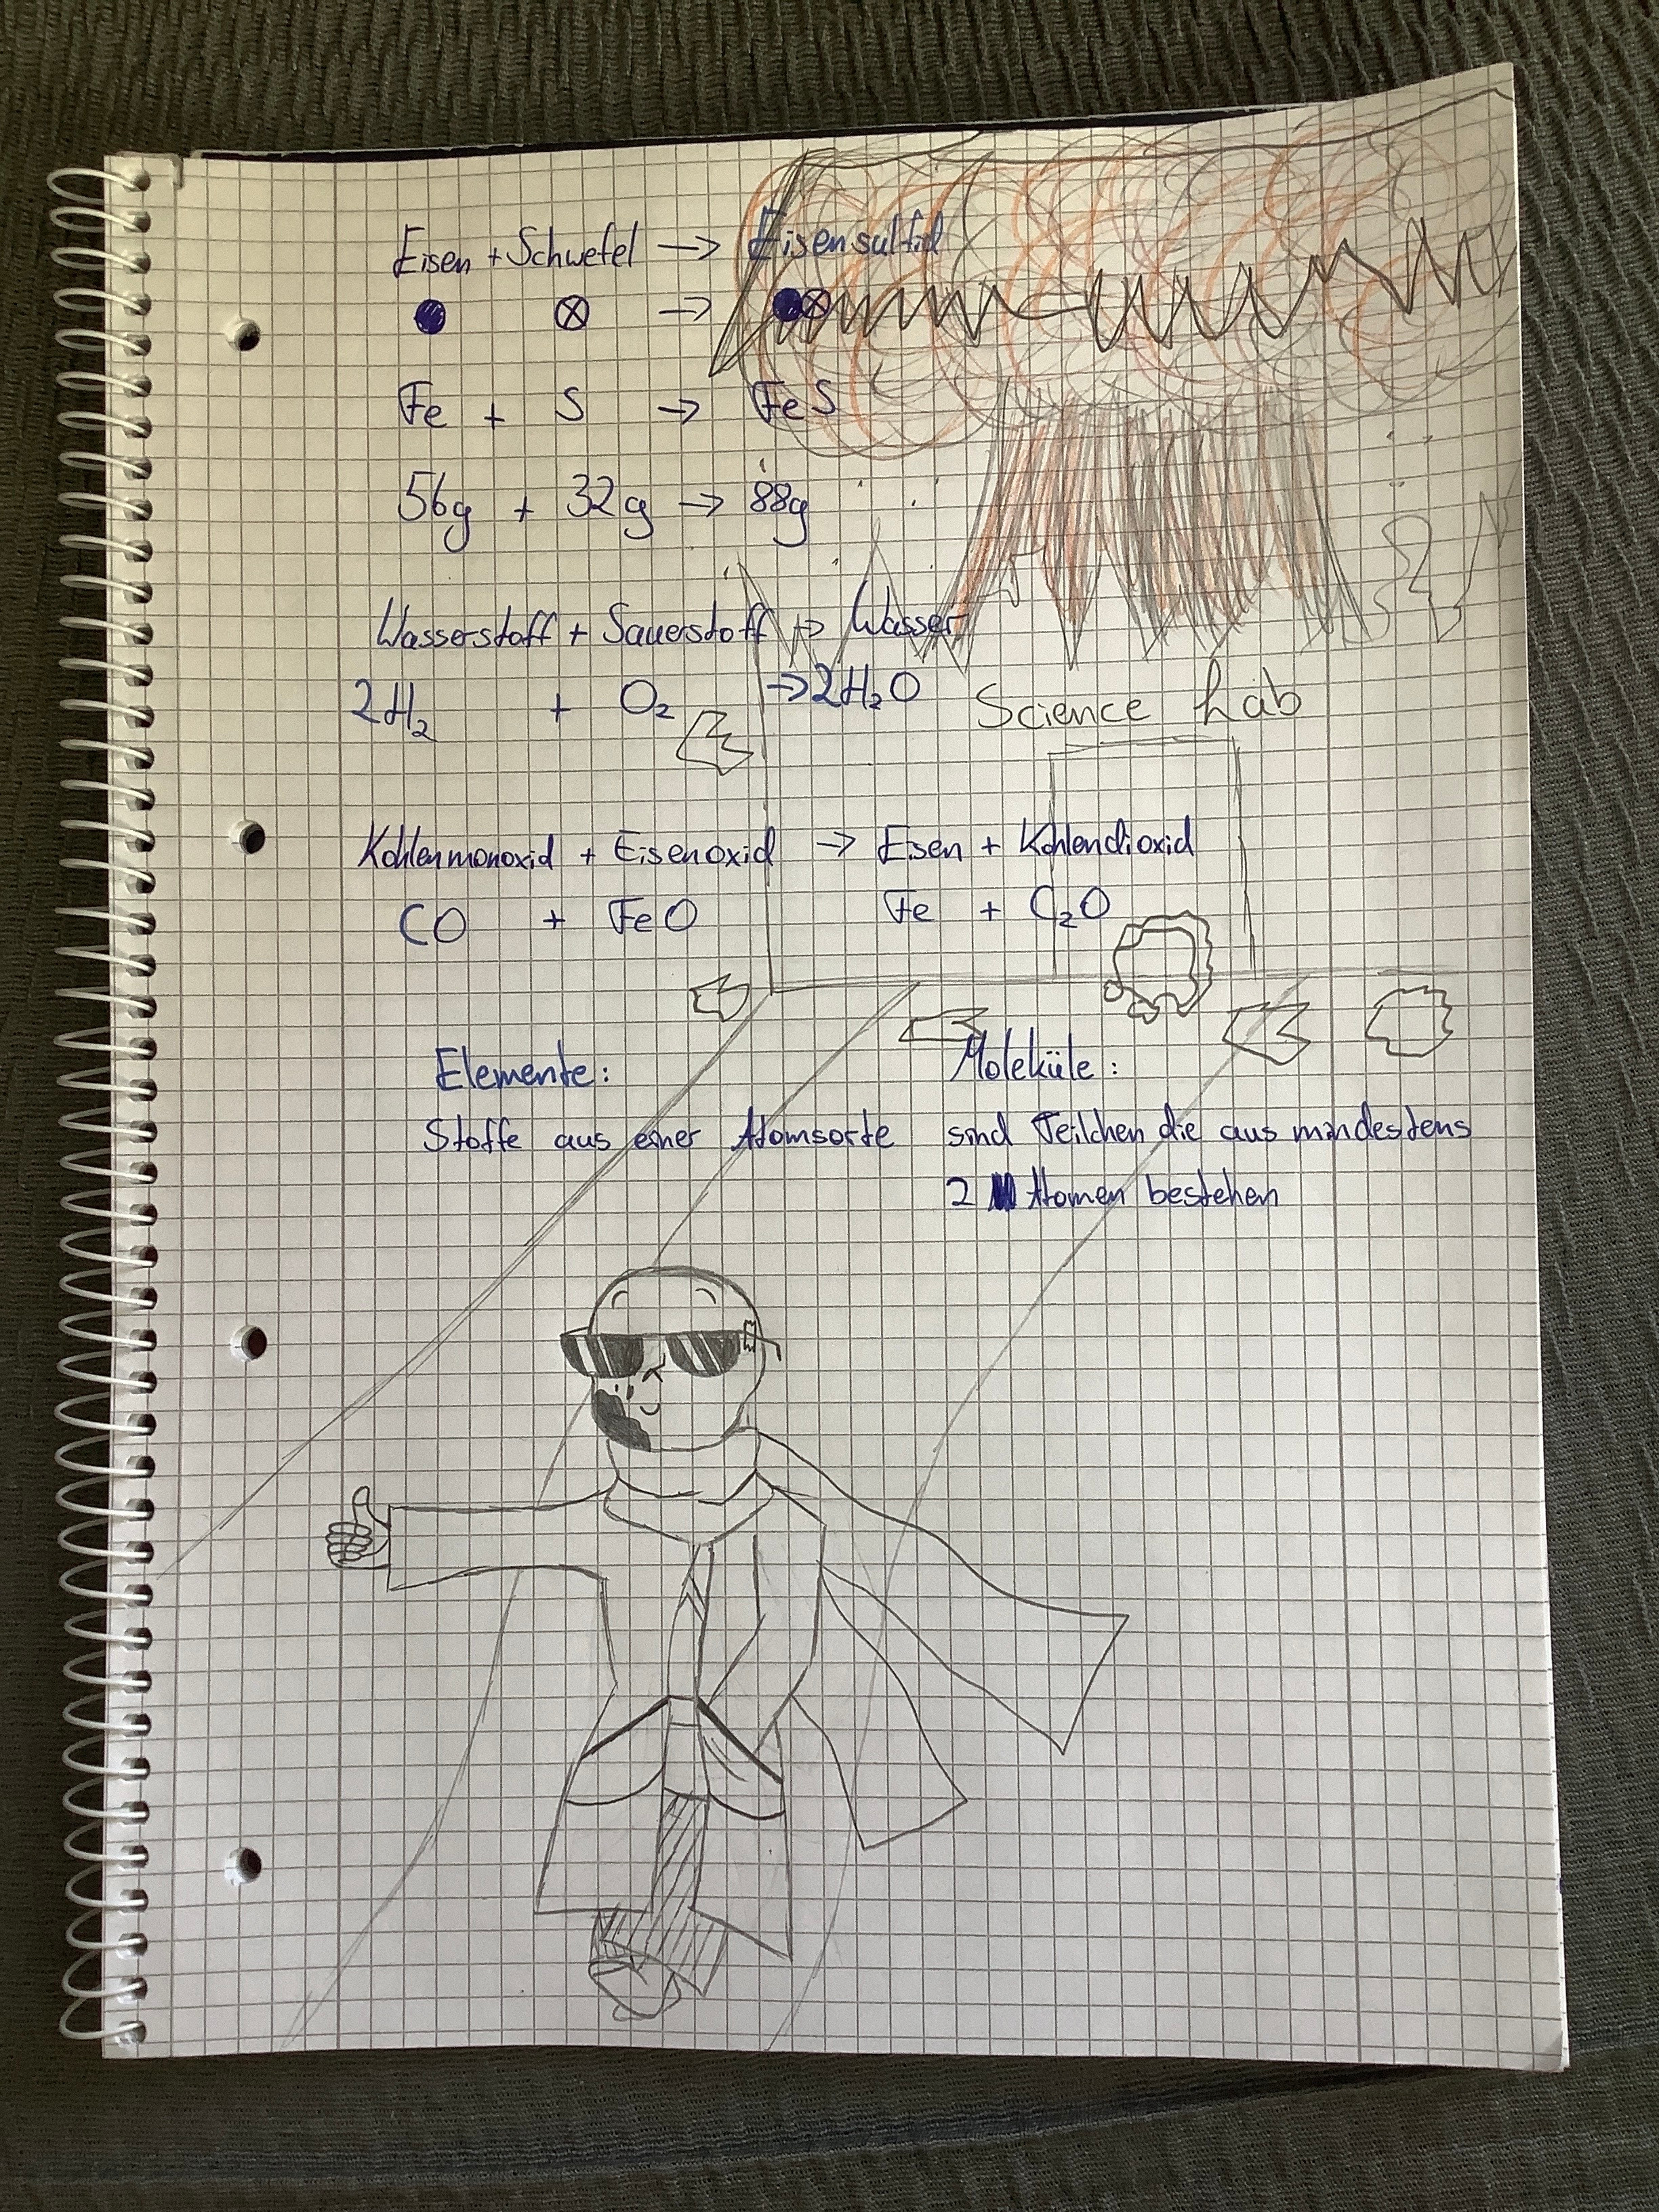 Eisen + Schwefel → Eisensulfid
→
Fe + S → FeS
56g + 32g → 88g
Wasserstoff + Sauerstoff → Wasser
2H₂ + O₂ → 2H₂O
Science Lab
Kohlenmonoxid + Eisenoxid → Eisen + Kohlendioxid
CO + FeO Fe + C₂O
Elemente:
Stoffe aus einer Atomsorte
Moleküle:
sind Teilchen die aus mindestens
2 Atomen bestehen